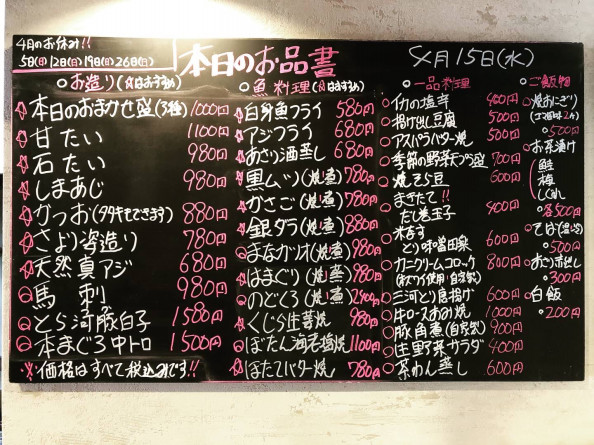 4月のお休み!!
5日(日)12日(日)19日(日)26日(日)
本日のお品書
4月15日(水)
○お造り(☆はおすすめ)
☆本日のおまかせ盛(3種) 1000円
☆甘たい 1100円
☆石たい 980円
☆しまあじ 980円
☆かつお(タタキもできます) 880円
☆さより姿造り 780円
☆天然真アジ 680円
○馬刺 980円
○とら河豚白子 1580円
○本まぐろ中トロ 1500円
※価格はすべて税込みです!!
○魚料理(☆はおすすめ)
☆白身魚フライ 580円
☆アジフライ 680円
☆あさり酒蒸し 680円
☆黒ムツ(焼・煮) 780円
☆かさご(焼・煮) 780円
☆銀ダラ(焼・煮) 880円
☆まなガツオ(焼・煮) 780円
☆はまぐり(焼・蒸) 780円
○のどくろ(焼・煮) 2400円
☆くじら生姜焼 980円
○ぼたん海老塩焼 1100円
☆ほたてバター焼 780円
○一品料理
○イカの塩辛 400円
○揚げ出し豆腐 500円
○アスパラバター焼 500円
○季節の野菜天ぷら盛 700円
○焼そら豆 600円
○まきたて!!
だし巻玉子 400円
○水なす
とり味噌田楽 600円
○カニクリームコロッケ 800円
(ズワイ使用・自家製)
○三河とり唐揚げ 600円
○牛ロースおろし焼 1000円
○豚角煮(自家製) 900円
○生野菜サラダ 400円
○茶わん蒸し 600円
○ご飯物
○焼おにぎり
500円
○お茶漬け
鮭
梅
しぐれ
○各500円
○500円
○あさり赤だし
○300円
○白飯
○200円